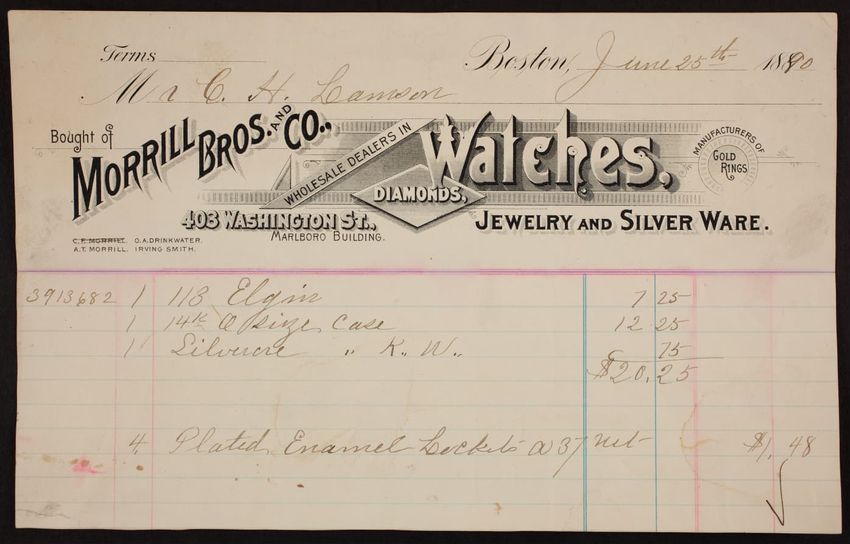 Terms
Boston, June 25th 1890
Mr C. H. Lamson
Bought of MORRILL BROS. AND CO.,
WHOLESALE DEALERS IN
Watches,
DIAMONDS,
MANUFACTURERS OF GOLD RINGS
403 WASHINGTON ST.,
JEWELRY AND SILVER WARE.
MARLBORO BUILDING.
C.F. MORRILL. O.A. DRINKWATER.
A.T. MORRILL. IRVING SMITH.
3913682 1 113 Elgin 7 25
1 14K O size Case 12 25
1 Silverore " K. W. 75
$20.25
4 Plated Enamel Lockets @ 37 net $1.48